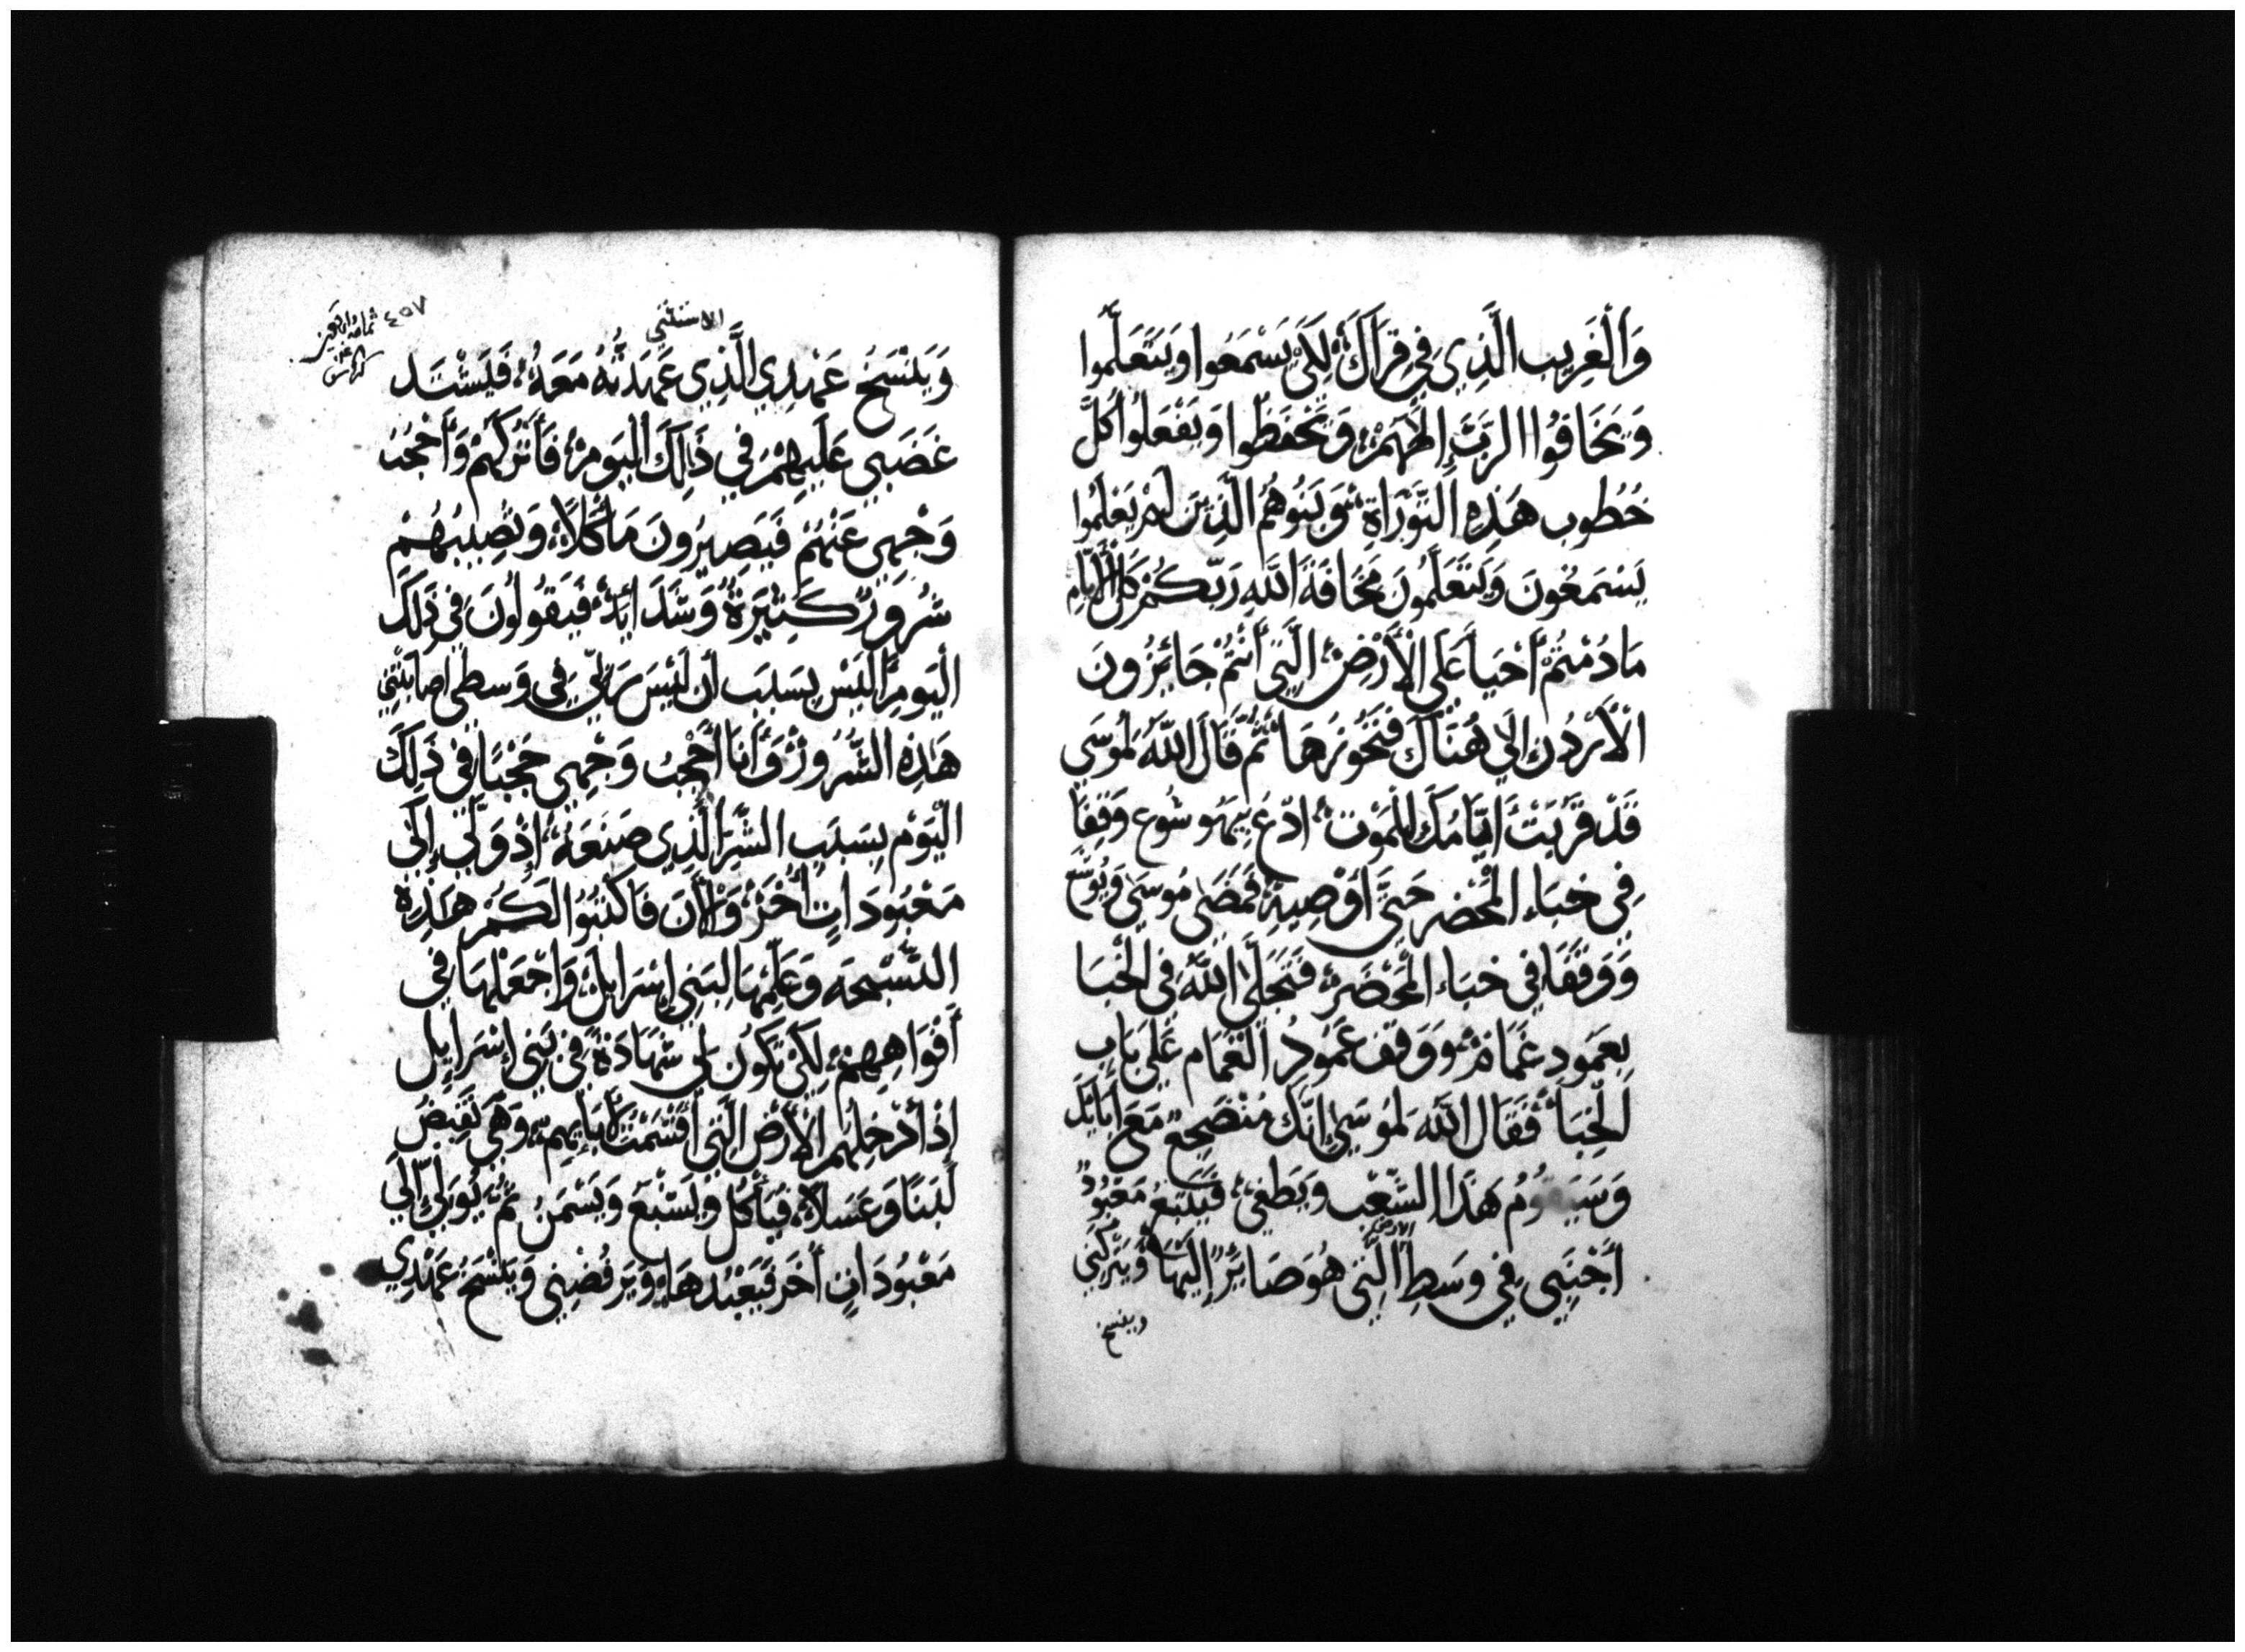 وَالْغَرِيب الَّذِي فِي قِرَاكَ لِكَيْ يَسْمَعُوا وَيَتَعَلَّمُوا
وَيَخَافُوا الرَّبَّ إِلَهَهُمْ وَيَحْفَظُوا وَيَفْعَلُوا كُلَّ
خُطُوب هَذِهِ التَّوْرَاةِ وَبَنُوهُم الَّذِينَ لَمْ يَعْلَمُوا
يَسْمَعُونَ وَيَتَعَلَّمُونَ مَخَافَةَ اللَّهِ رَبِّكُمْ كُلَّ الْأَيَّامِ
مَا دُمْتُمْ أَحْيَاً عَلَى الْأَرْضِ الَّتِي أَنْتُمْ جَائِزُونَ
الْأُرْدُن إِلَى هُنَاكَ فَتَحُوزُهَا ثُمَّ قَالَ اللَّهُ لِمُوسَى
قَدْ قَرُبَتْ أَيَّامُكَ لِلْمَوْتِ ادْعُ بِيَهُوشُوع وَقِفَا
فِي خِبَاء الْمَحْضَر حَتَّى أُوصِيَهُ فَمَضَى مُوسَى وَيُوشَع
وَوَقَفَا فِي خِبَاء الْمَحْضَرِ فَتَجَلَّى اللَّهُ فِي الْخِبَا
بِعَمُودِ غَمَامٍ وَوَقَفَ عَمُودُ الْغَمَام عَلَى بَابِ
الْخِبَاً فَقَالَ اللَّهُ لِمُوسَى إِنَّكَ مُنْضَجِعٌ مَعَ آبَائِكَ
وَسَيَقُومُ هَذَا الشَّعْب وَيَطْغِي فَيَتَّبِعُ مَعْبُودً
أَجْنَبِي فِي وَسَطِ الَّتِي هُوَ صَائِرٌ إِلَيْهَا وَيَتْرُكُنِي
الارض
وينسخ
٤٥٧
الاستثني
وَيَنْسَخُ عَهْدِي الَّذِي عَهَدتُّهُ مَعَهُ فَيَشْتَد
غَضَبِي عَلَيْهِمْ فِي ذَلِكَ الْيَوْمِ فَأَتْرُكُهُمْ وَأَحْجُبُ
وَجْهِي عَنْهُمْ فَيَصِيرُونَ مَأْكَلاً وَتُصِيبُهُمْ
شُرُورٌ كَثِيرَةٌ وَشَدَائِدٌ فَيَقُولُونَ فِي ذَلِكَ
الْيَوْمِ أَلَيْسَ بِسَبَب أَن لَيْسَ رَبِّي فِي وَسطي اصابتني
هَذِهِ الشُّرُورُ وَأَنَا أَحْجُبُ وَجْهِي حَجْبًا فِي ذَلِكَ
الْيَوْم بِسَبَبِ الشَّرِّ الَّذِي صَنَعَهُ إِذْ وَلَّى إِلَى
مَعْبُودَاتٍ أُخَرَ وَالْأَنَ فَاكْتُبُوا لَكُمْ هَذِهِ
التَّسْبِحَه وَعَلِّمْهَا لِبَنِي إِسْرَايِلَ وَاجْعَلْهَا فِي
أَفْوَاهِهِمْ لِكَيْ تَكُونَ لِي شَهَادَةً فِي بَنِي إِسْرَايِل
إِذَا أُدْخِلُهُم الْأَرْضَ الَّتِي أَقْسَمْتُ لِأَبَايِهِمْ وَهِيَ تَفِيضُ
لَبَنًا وَعَسَلاً فَيَأْكُلُ وَيَشْبَعُ وَيَسْمَنُ ثُمَّ يُوَلِّي إِلَى
مَعْبُودَاتٍ أُخَرَ فَيَعْبُدُهَا وَيَرْفُضُنِي وَيَنْسَخُ عَهْدِي